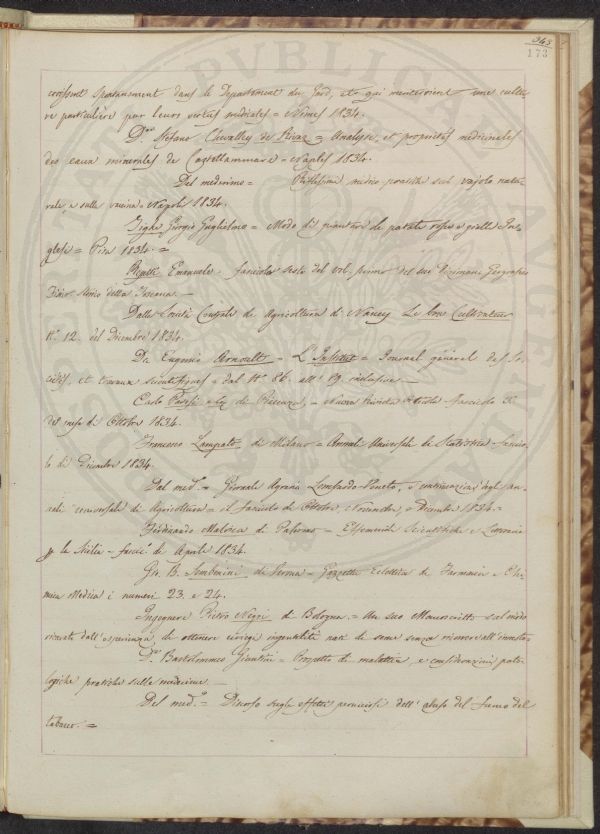 345
173
croissent spontanement dans le Departement du Gard, etc qui meriteroient une cultu
re particulière par leurs vertus medicales = Nimes 1834.
D.r Stefano Chevalley de Rivaz = Analyse, et proprietés medicinales
des eaux minerales de Castellammare = Naples 1834.
Del medesimo = Riflessioni medico pratiche sul vajolo natu-
rale, e sulla vaccina = Napoli 1834.
Tighe Giorgio Guglielmo = Modo di piantare le patate rosse e gialle In-
glesi = Pisa 1834. =
Repetti Emanuele. fascicolo sesto del vol. primo del suo Dizionario Geografico
Fisico Storico della Toscana. —
Dalla Società Centrale di Agricoltura di Nancy Le bon Cultivateur
N.° 12. del Dicembre 1834.
Da Eugenio Arnoult = L'Institut = Journal général des So-
ciétés, et travaux scientifiques = dal N.° 86. all' 89. inclusive —
Carlo = Nuova Rivista fascicolo XX
del mese di Ottobre 1834.
Francesco Lampato di Milano = Annali Universali di Statistica = fascico-
lo di Dicembre 1834.
Dal med.° = Giornale Agrario Lombardo-Veneto, e continuazione degli an-
nali universali di Agricoltura = il fascicolo di Ottobre, Novembre, e Dicembre 1834. =
Ferdinando Malvica di Palermo = Effemeridi Scientifiche e Letterarie
p la Sicilia = fascic. di Aprile 1834.
Gio. B. Sembenini di Verona = Gazzetta Eclettica di Farmacia e Chi-
mica Medica i numeri 23. e 24.
Ingegnere Pietro Negri di Bologna = Un suo Manoscritto sul modo
ricavato dall' esperienza di ottenere ciliegi ingentiliti nati di seme senza ricorrere all' innesto
D.r Bartolommeo = Prospetto di malattie, e considerazioni pato-
logiche pratiche sulle medesime. —
Del med.° = Discorso sugli effetti perniciosi dell' abuso del fumo del
tabacco. =